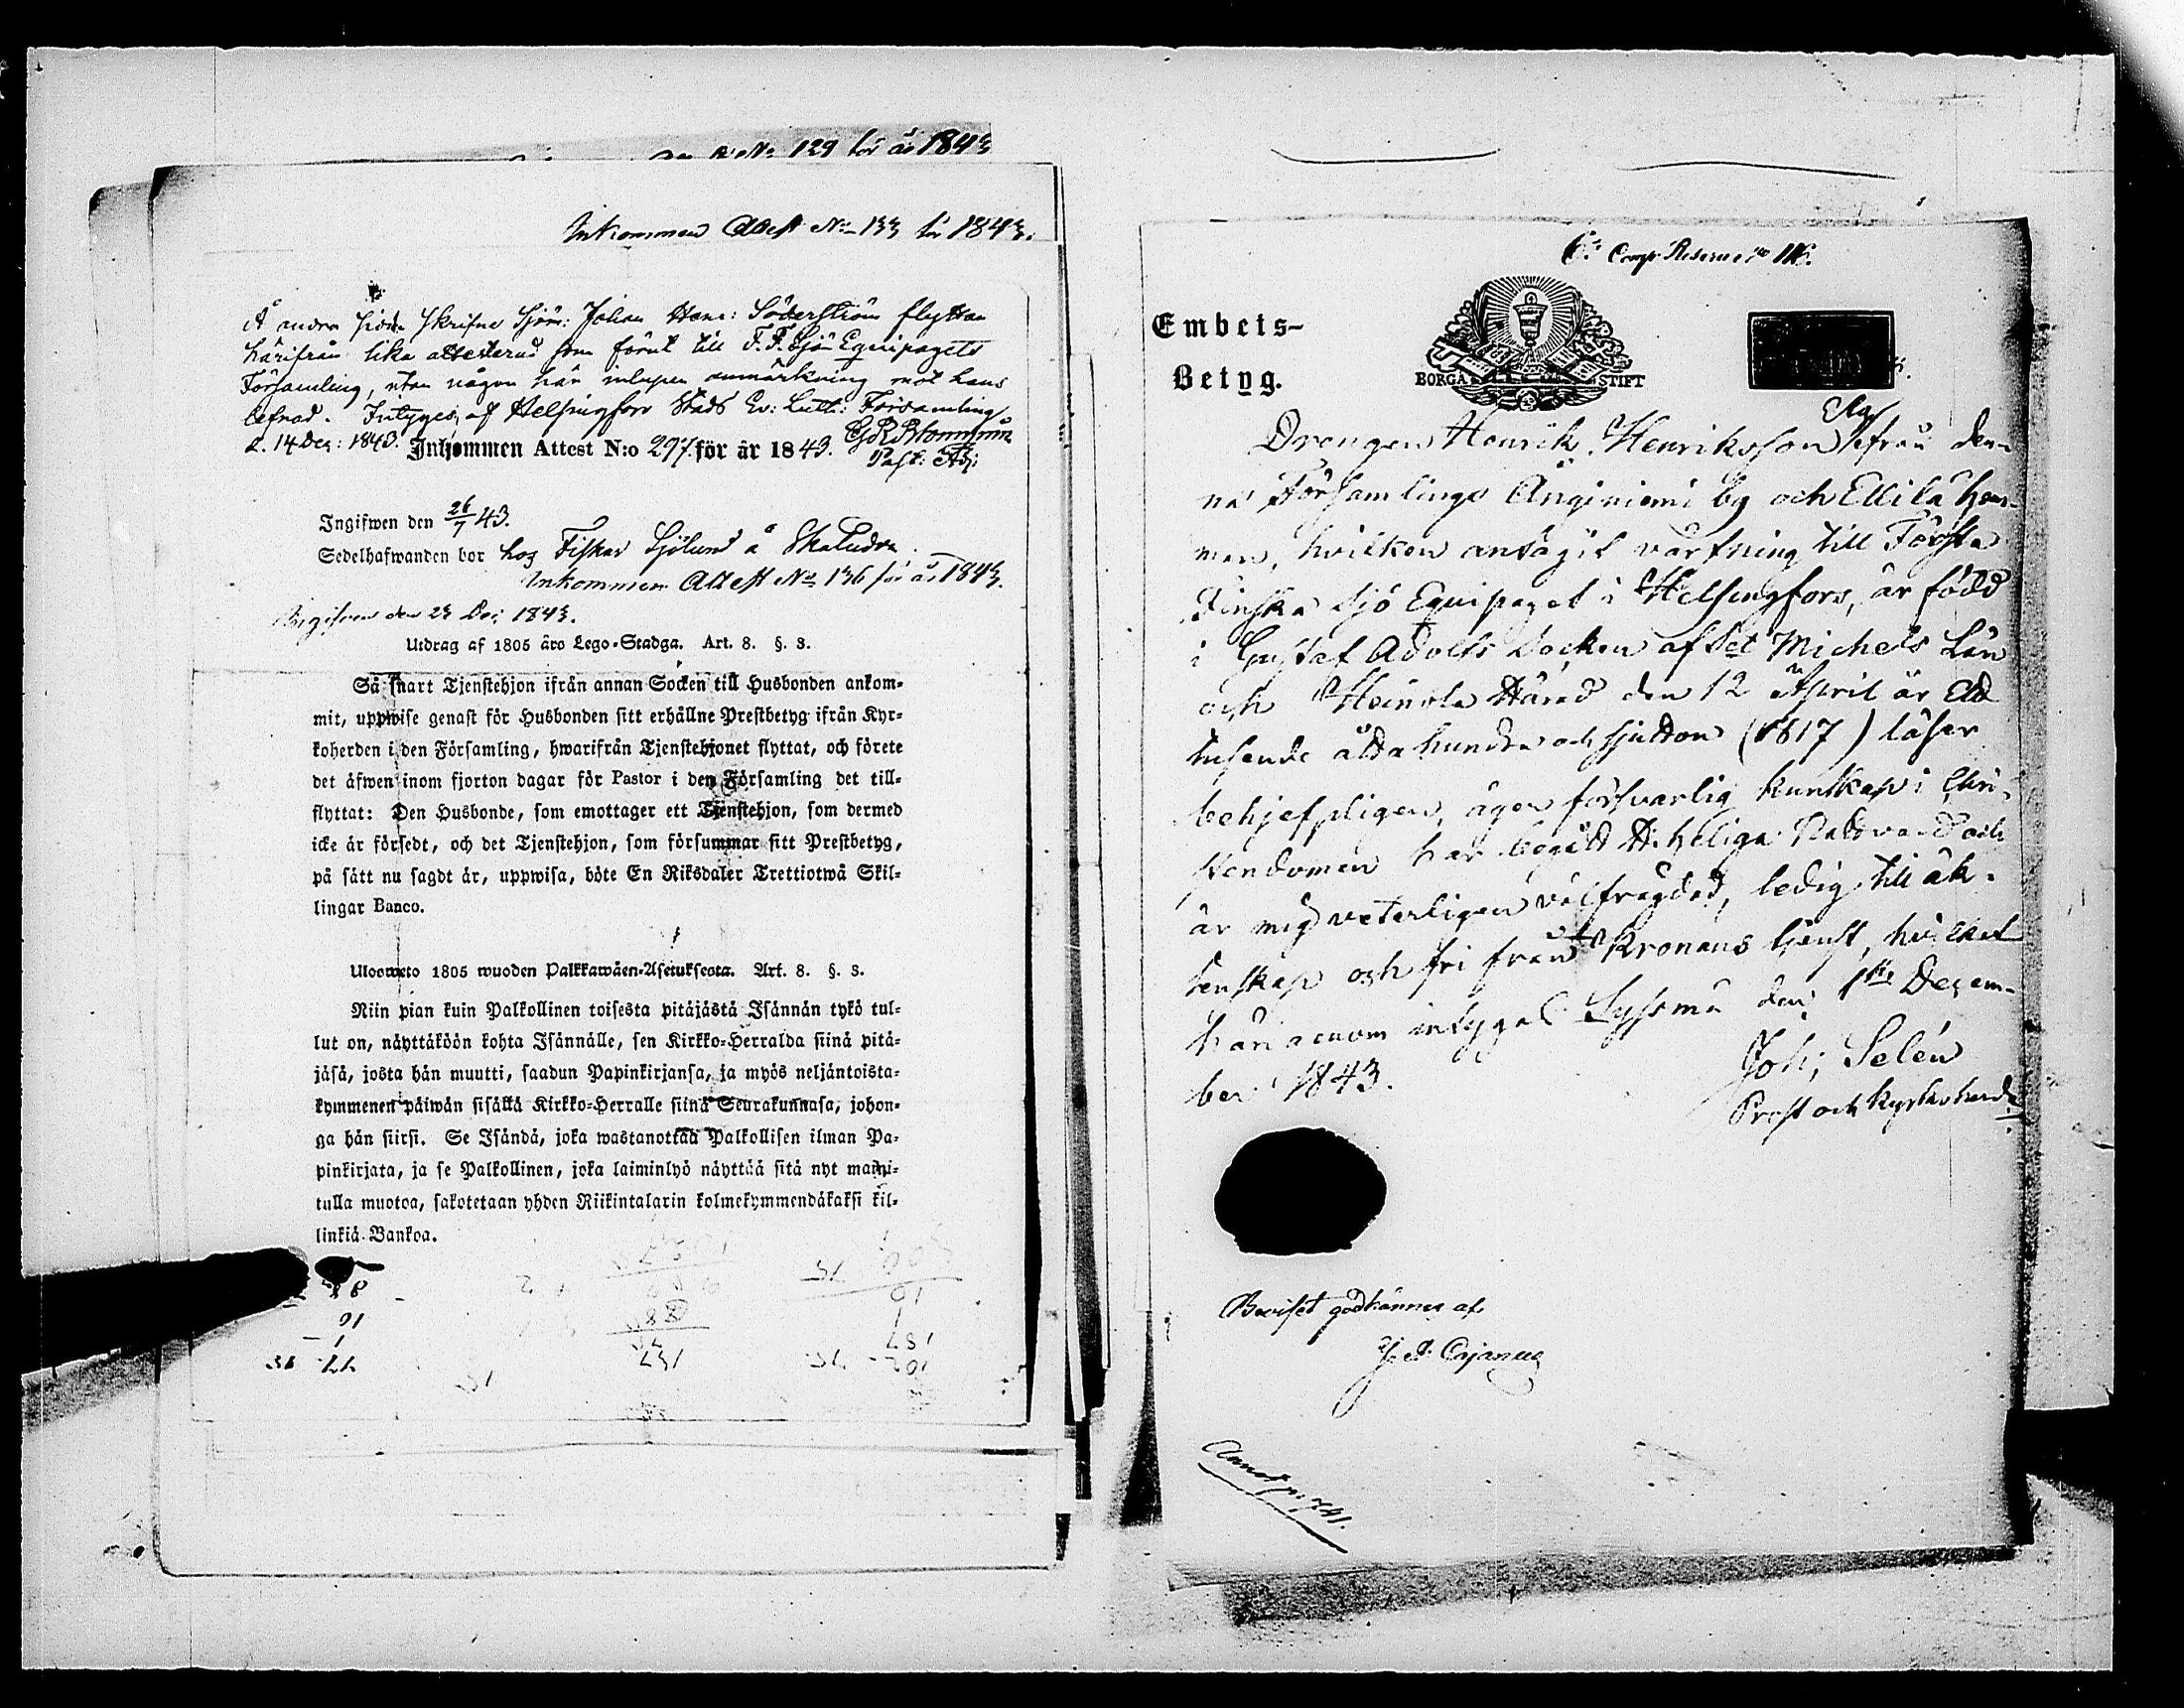 N:o 129 för år 1843
Inkommen Attest N:o 133 för 1843.
Å andra sidan skrifne Sjöm: Johan Hans: Söderström flyttar
härifrån lika attesterad som förut till F. F. Sjö Equipagets
Församling, utan någon här inlupen anmärkning mot hans
lefnad. Intygas, af Helsingfors Stads Ev: Luth: Församling
d. 14 Dec: 1843.
Past: Adj:
Inkommen Attest N:o 297 för år 1843.
Ingifwen den 26/7 43.
Sedelhafwanden bor hos Fiskar Sjölund å Skatudden.
Inkommen Attest No 136 för år 1843.
Ingifven den 23 Dec; 1843.
Utdrag af 1805 års Lego-Stadga. Art. 8. §. 3.
Så snart Tjenstehjon ifrån annan Socken till Husbonden ankom-
mit, uppwise genast för Husbonden sitt erhållne Prestbetyg ifrån Kyr-
koherden i den Församling, hwarifrån Tjenstehjonet flyttat, och förete
det äfwen inom fjorton dagar för Pastor i den Församling det till-
flyttat: Den Husbonde, som emottager ett Tjenstehjon, som dermed
icke är försedt, och det Tjenstehjon, som försummar sitt Prestbetyg,
på sätt nu sagdt är, uppwisa, böte En Riksdaler Trettiotwå Skil-
lingar Banco.
Uloswето 1805 wuoden Palkkawäen-Asetuksesta. Art. 8. §. 3.
Niin pian kuin Palkollinen toisesta pitäjästä Isännän tykö tul-
lut on, näyttäköön kohta Isännälle, sen Kirkko-Herralda siinä pitä-
jäsä, josta hän muutti, saadun Papinkirjansa, ja myös neljäntoista-
kymmenen päiwän sisällä Kirkko-Herralle siinä Seurakunnasa, johon-
ga hän siirsi. Se Isändä, joka wastanottaa Palkollisen ilman Pa-
pinkirjata, ja se Palkollinen, joka laiminlyö näyttää sitä nyt maini-
tulla muotoa, sakotetaan yhden Riikintalarin kolmekymmendäkaksi kil-
linkiä Bankoa.
6:te Comp. Reserve No 116.
Embets-
Betyg.
BORGÅ STIFT
Drengen Henrik Henriksson ifrån den-
na Församlings Änginiemi by och Ellilä hem-
man, hvilken antagit värfning till Första
Finska Sjö Equipaget i Helsingfors, är född
i Gustaf Adolfs Socken af S:t Michels Län
och Heinola Härad den 12 April år Ett
tusende åtta hundra och sjutton (1817) läser
behjelpligen, äger försvarlig kunskap i Chri-
stendomen har begått H: heliga Nattvard och
är mig veterligen välfrägdad, ledig till äk-
tenskap och fri från Kronans tjenst, hvilket
härigenom intygas Sysmä den 1:sta Decem-
ber 1843.
Joh; Selén
Prost och Kyrkoherde
Beviset godkännes af
J. A. Cajanus
Annot p. 741.